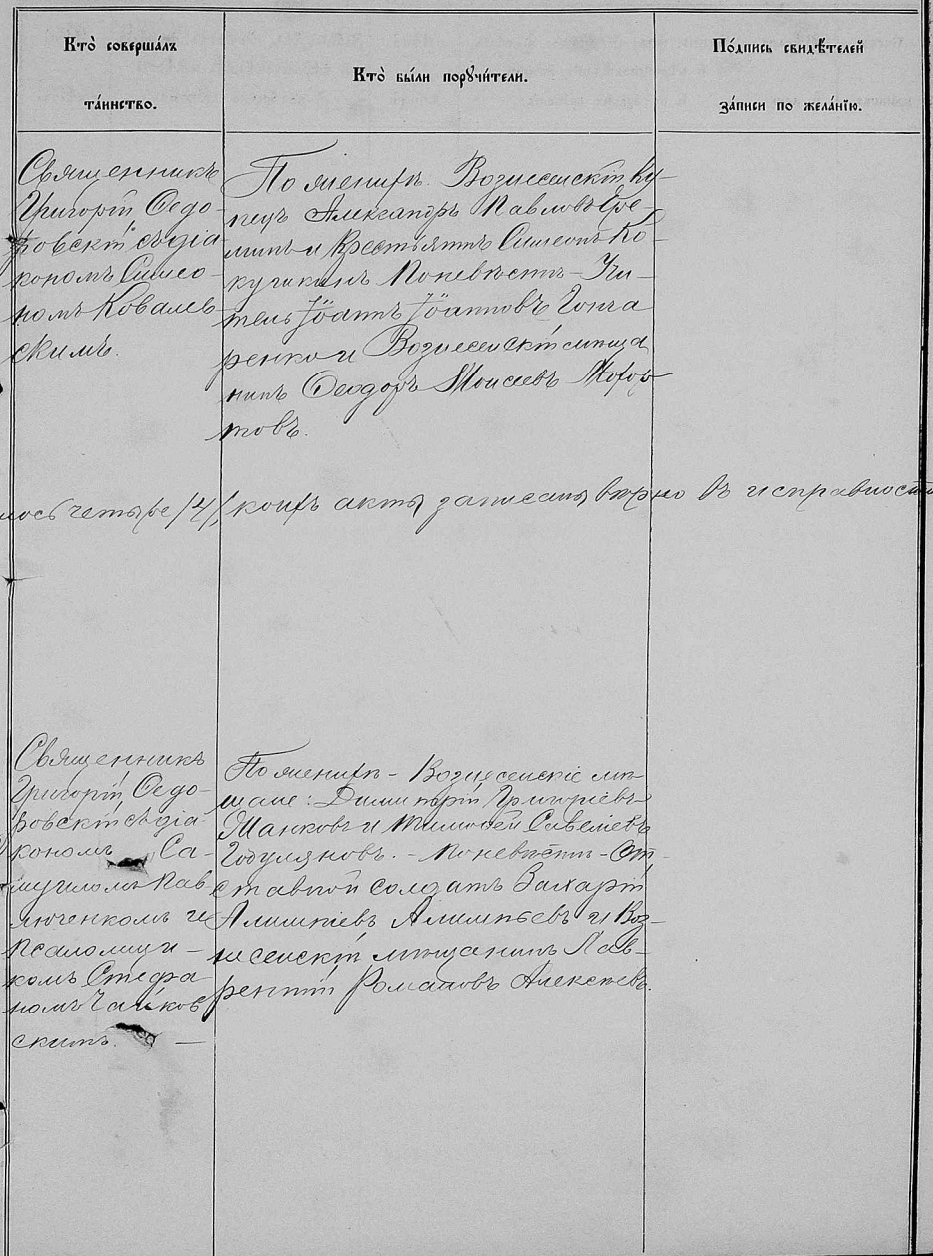 Кто̀ соверша́лъ
та́инство.
Кто̀ бы́ли порꙋчи́тели.
По́дпись свидѣ́телей
за́писи по жела́нїю.
Священникъ
Григорій Ѳедо-
ровскій съ діа
кономъ Симео-
номъ Ковалев
скимъ.
По женихѣ. Вознесенскій ку-
пецъ Александръ Павловъ Гре-
минъ и крестьянъ Симеонъ Ко-
кушкинъ По невѣстѣ - Учи-
тель Іоаннъ Іоанновъ Гонча
ренко и Вознесенскій мѣща
нинъ Ѳеодоръ Моисеевъ
товъ.
лось четыре /4/, коихъ акты записаны вѣрно въ исправности
Священникъ
Григорій Ѳедо-
ровскій съ діа
кономъ Са-
муиломъ Пав
люченкомъ и
псаломщи-
комъ Стефа
номъ Чайков
скимъ. —
По женихѣ - Вознесенскіе мѣ-
щане: Димитрій Григорьевъ
Манковъ и Тимоѳей Савеліевъ
Годуляновъ. - По невѣстѣ - От
ставной солдатъ Захарій
Алимпіевъ Алимпьевъ и Воз-
несенскій мѣщанинъ Лав-
рентій Романовъ Алексѣевъ.